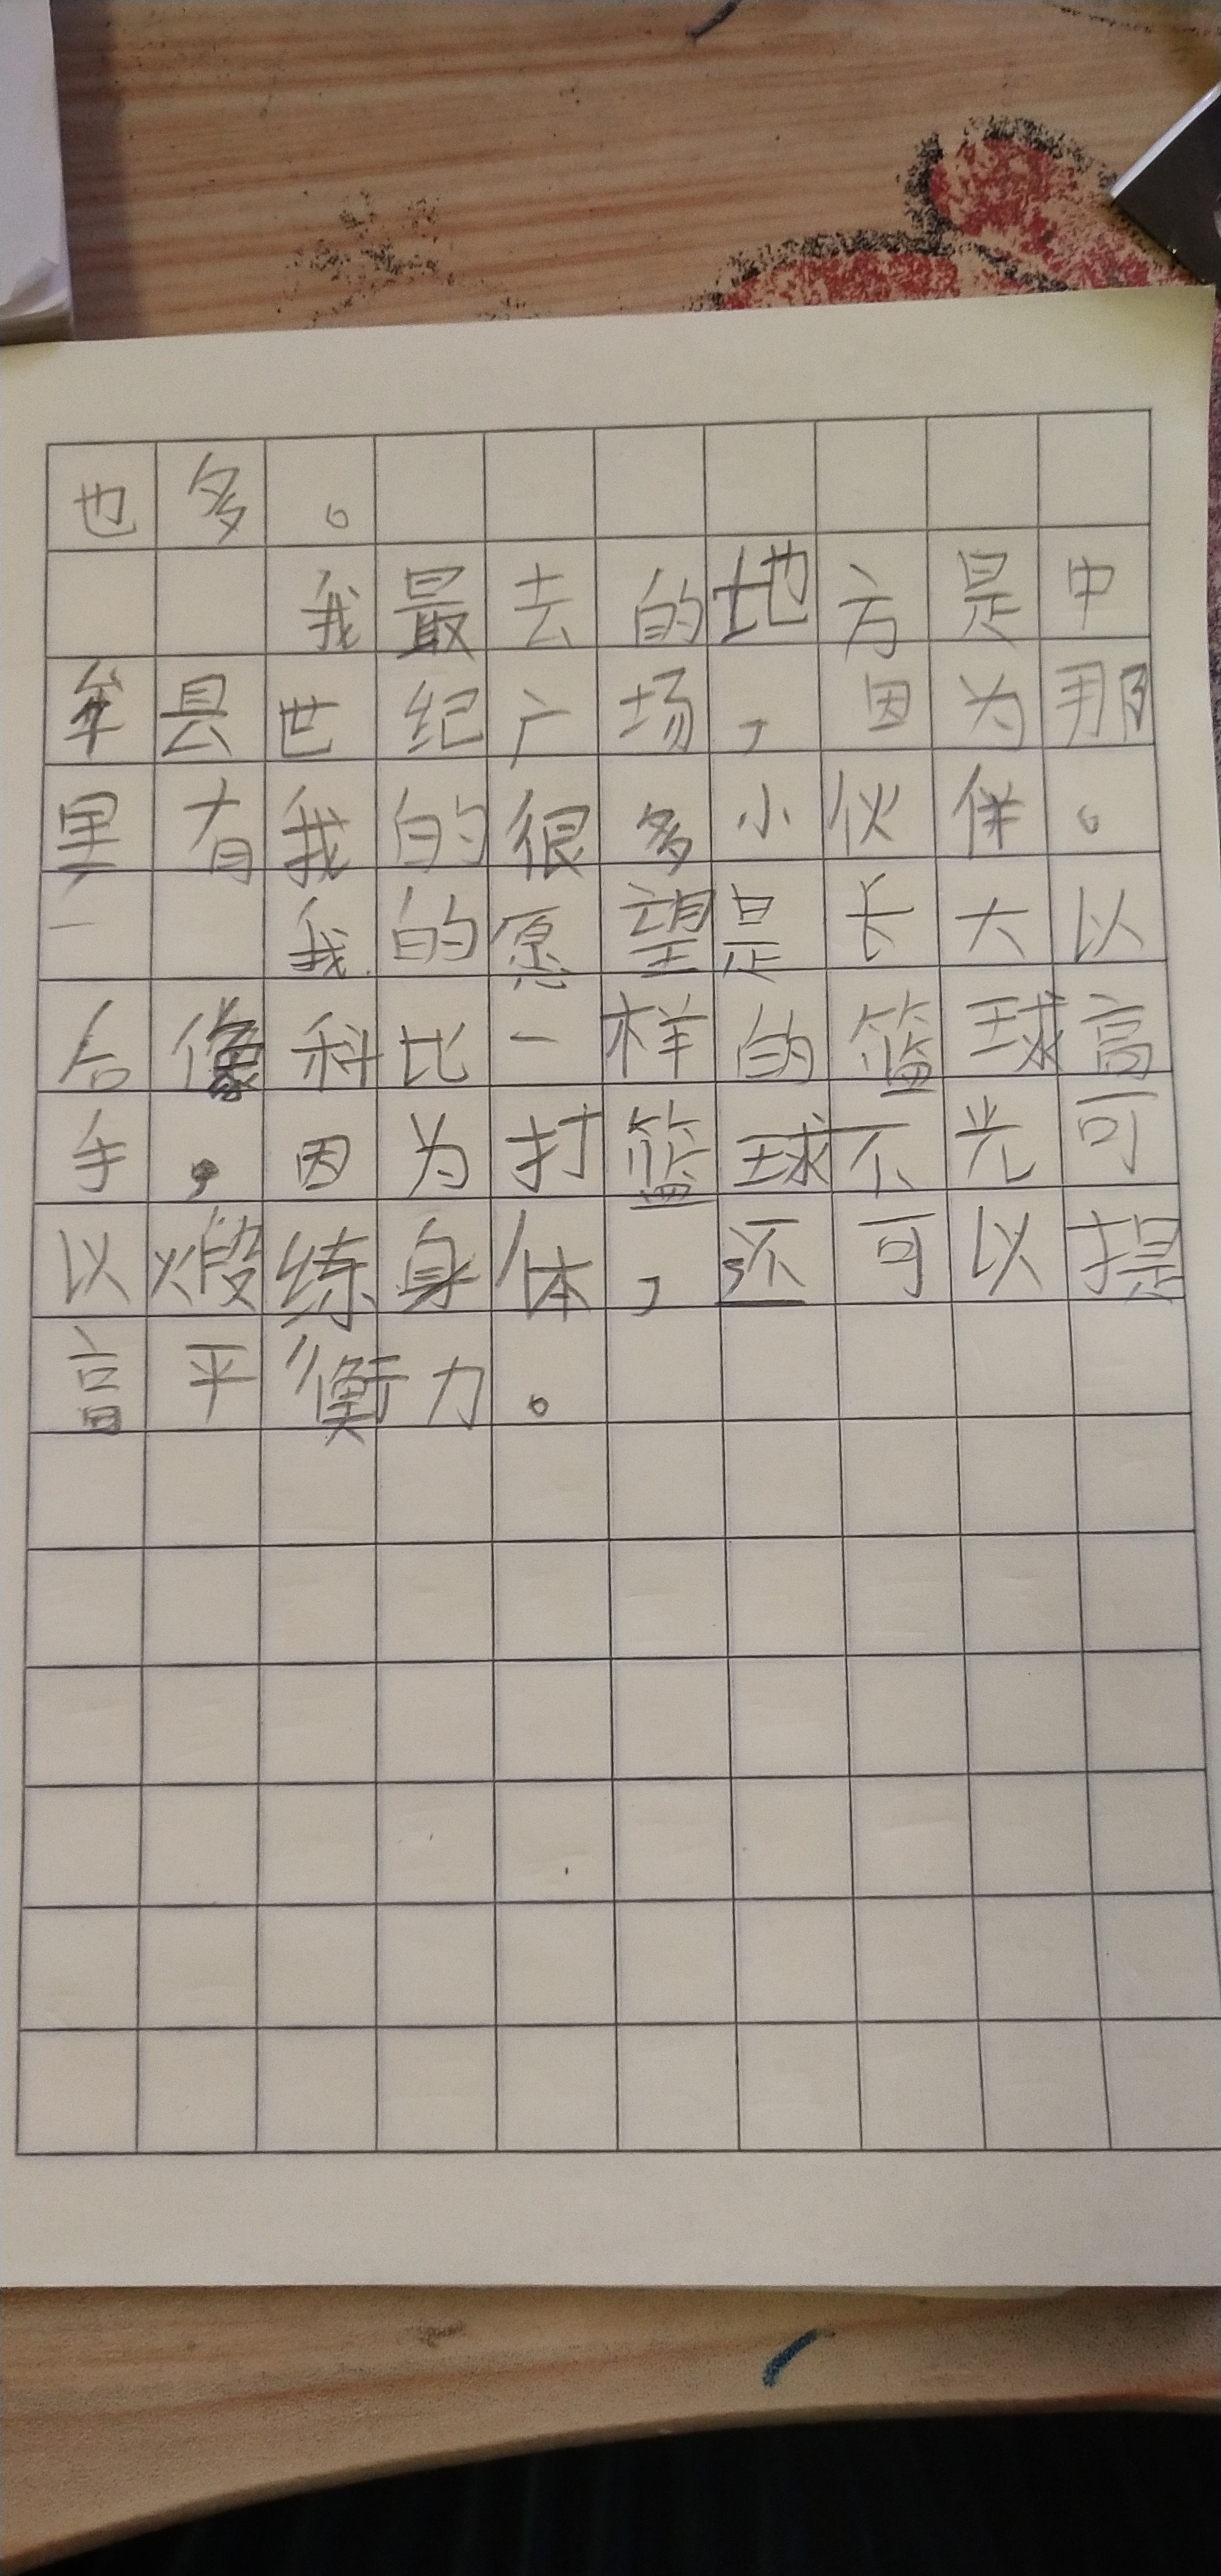 也多。
我最去的地方是中
牟县世纪广场，因为那
里有我的很多小伙伴。
我的愿望是长大以
后像科比一样的篮球高
手，因为打篮球不光可
以煅练身体，还可以提
高平衡力。